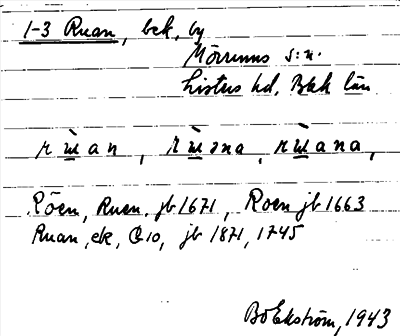 1-3 Ruan, bek, by
Mörrums s:n.
Listers hd, Blek län
rẁ̲an, rẁ̲ana, rẁ̲ana,
Röen, Ruen. jb 1671, Roen jb 1663
Ruan, ek, G 10, jb 1871, 1745
Bo Ekström, 1943